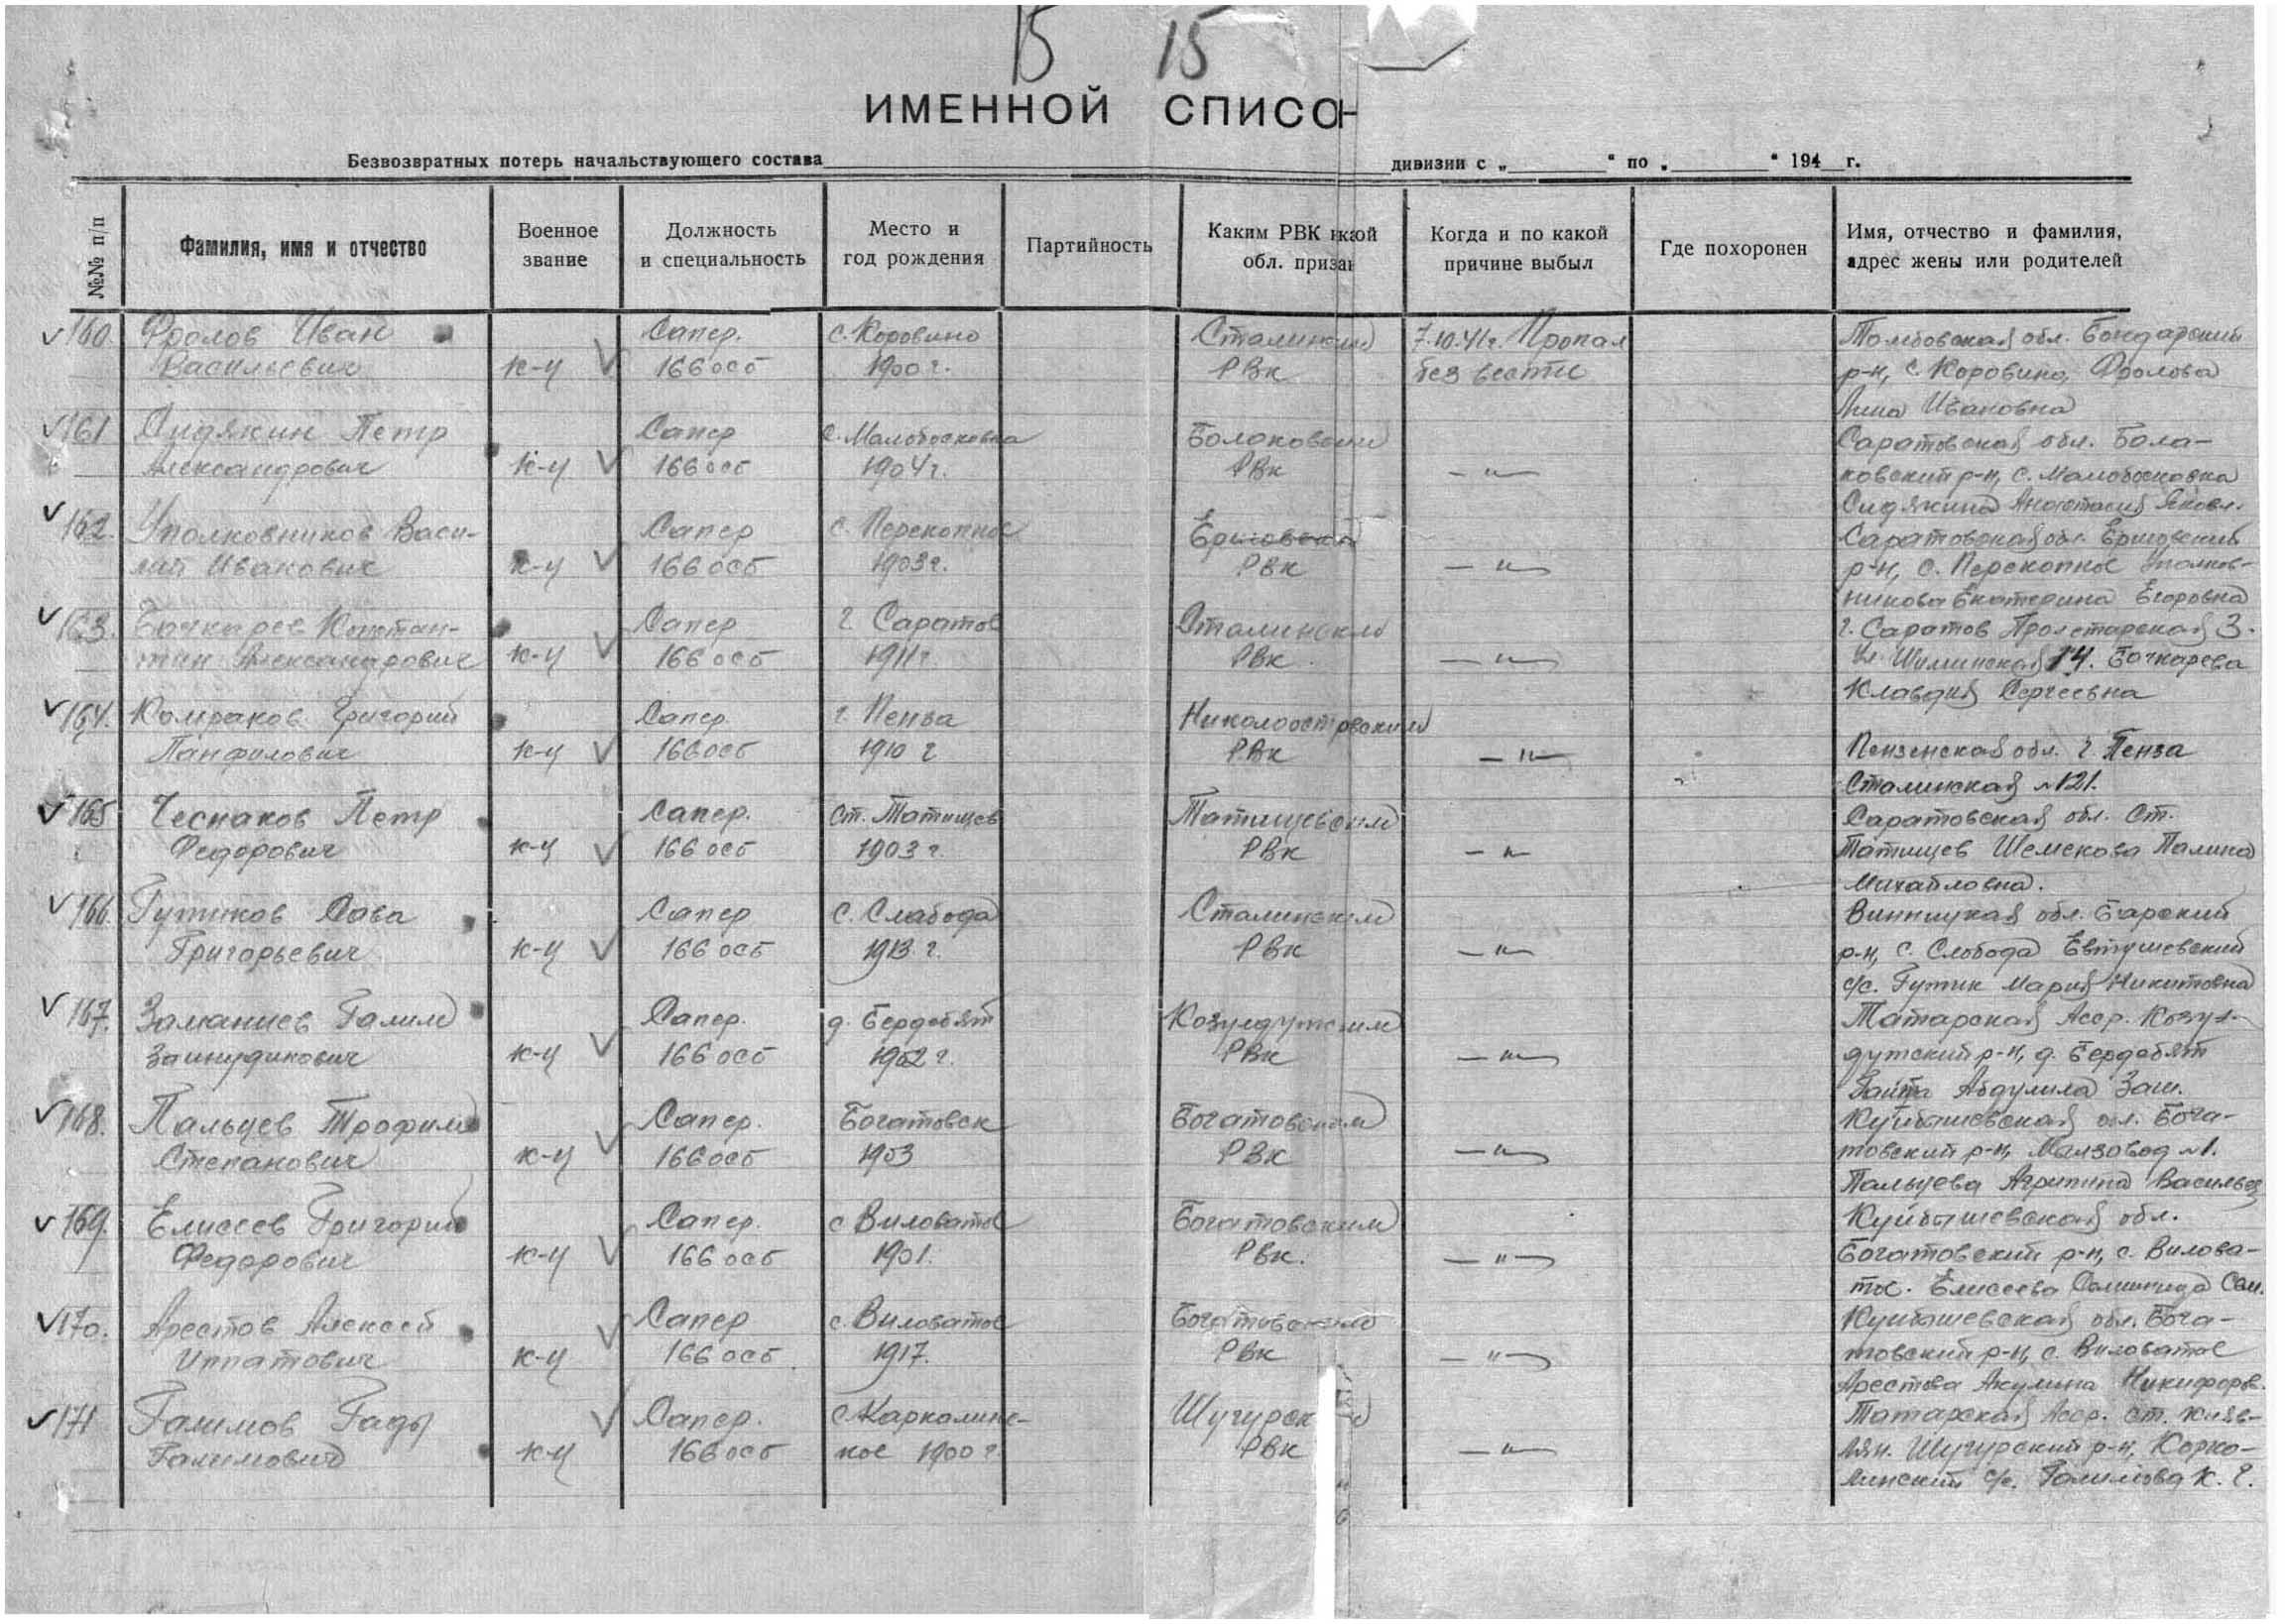 15 15
ИМЕННОЙ СПИСО
Безвозвратных потерь начальствующего состава дивизии с „ “ по „ “ 194 г.
№№ п/п
Фамилия, имя и отчество
Военное звание
Должность и специальность
Место и год рождения
Партийность
Каким РВК какой обл. призан
Когда и по какой причине выбыл
Где похоронен
Имя, отчество и фамилия, адрес жены или родителей
160. Фролов Иван Сапер. с. Коровино Сталинский 7.10.41г. Пропал Томбовская обл. Бондарский
Васильевич к-ц 166 осб 1900 г. РВК без вести р-н, с. Коровино, Фролова
Ивановна
161 Сидякин Петр Сапер Болоковский Саратовская обл. Бала-
Александрович к-ц 166 осб 1904 г. РВК — „ — ковский р-н, с.
Сидякина Анастасия Яковл.
162. Уполковников Васи- Сапер с. Перекопное Ершовский Саратовская обл. Ершовский
лий Иванович к-ц 166 осб 1903 г. РВК — „ — р-н, с. Перекопное Уполков-
никова Екатерина Егоровна
163. Бочкарев Констан- Сапер г. Саратов Сталинским г. Саратов Пролетарская 3.
тин Александрович к-ц 166 осб 1911 г. РВК — „ — ул. 14. Бочкарева
Клавдия Сергеевна
164. Комраков Григорий Сапер. г. Пенза Николоостровским
Панфилович к-ц 166 осб 1910 г РВК — „ — Пензенская обл. г. Пенза
Сталинская №121.
165 Чеснаков Петр Сапер. ст. Татищев Татищевским Саратовская обл. Ст.
Федорович к-ц 166 осб 1903 г. РВК — „ Татищев Шемекова Палина
Михайловна.
166. Гутиков Сава Сапер с. Слабода Сталинским Винницкая обл. Барский
Григорьевич к-ц 166 осб 1913 г. РВК — „ — р-н, с. Слобода Евтушевский
с/с. Гутик Мария Никитовна
167. Заманиев Галим Сапер. д. Бердебят Татарская Асср.
Заинудинович к-ц 166 осб 1902 г. РВК — „ — р-н, д. Бердебят
Абдулила Зам.
168. Пальцев Трофим Сапер. Богатовск Богатовским Куйбышевская обл. Бога-
Степанович к-ц 166 осб 1903 РВК — „ — товский р-н, №1.
Пальцева Агрипина Васильев
169. Елисеев Григорий Сапер. с Виловатое Богатовским Куйбышевская обл.
Федорович к-ц 166 осб 1901. РВК. — „ — Богатовский р-н, с. Вилова-
тое. Елисеева
170. Арестов Алексей Сапер с. Виловатое Богатовским Куйбышевская обл. Бога-
Ипатович к-ц 166 осб. 1917. РВК — „ — товский р-н, с. Виловатое
Арестова Акулина Никифоров.
171 Галимов Гады Сапер. с Каркалинс- Шугурск Татарская Асср. ст. Кляв-
Галимович к-ц 166 осб кое 1900 г. РВК — „ — лян. Шугурский р-н, Корко-
линский с/с. Галимова К. Г.